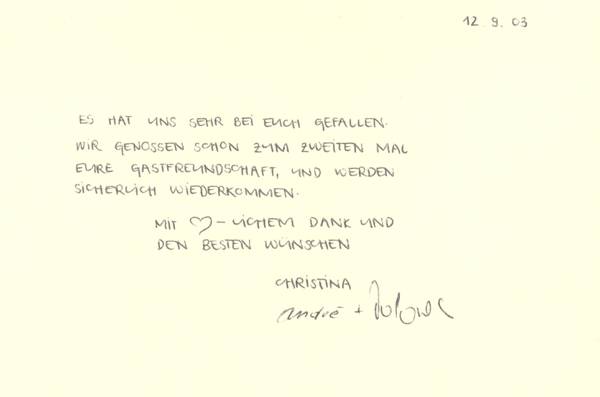 12.9.03
ES HAT UNS SEHR BEI EUCH GEFALLEN.
WIR GENOSSEN SCHON ZUM ZWEITEN MAL
EURE GASTFREUNDSCHAFT, UND WERDEN
SICHERLICH WIEDERKOMMEN.
MIT ♡-LICHEM DANK UND
DEN BESTEN WÜNSCHEN
CHRISTINA
André +